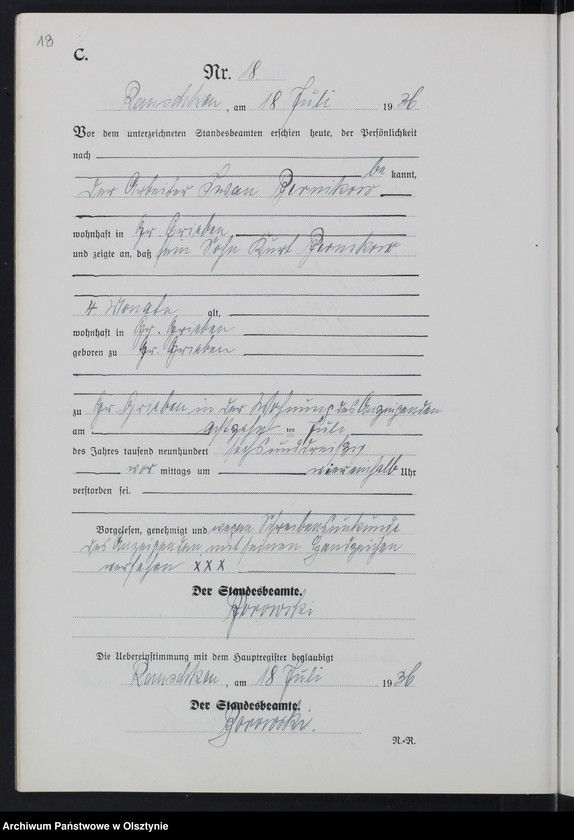 13
C.
Nr. 18
Ramschken, am 18 Juli 1936
Vor dem unterzeichneten Standesbeamten erschien heute, der Persönlichkeit
nach
bekannt,
der Arbeiter Iwan Pernikow
wohnhaft in Gr. Grieben,
und zeigte an, daß sein Sohn Kurt Pernikow
4 Monate alt,
wohnhaft in Gr. Grieben
geboren zu Gr. Grieben
zu Gr. Grieben in der Wohnung des Anzeigenden
am achtzehn ten Juli
des Jahres tausend neunhundert sechsunddreißig
vor mittags um viereinhalb Uhr
verstorben sei.
Vorgelesen, genehmigt und wegen Schreibensunkunde
des Anzeigenden mit seinen Handzeichen
versehen XXX
Der Standesbeamte.
Borowski
Die Uebereinstimmung mit dem Hauptregister beglaubigt
Ramschken, am 18 Juli 1936
Der Standesbeamte.
Borowski.
N.-N.
Archiwum Państwowe w Olsztynie